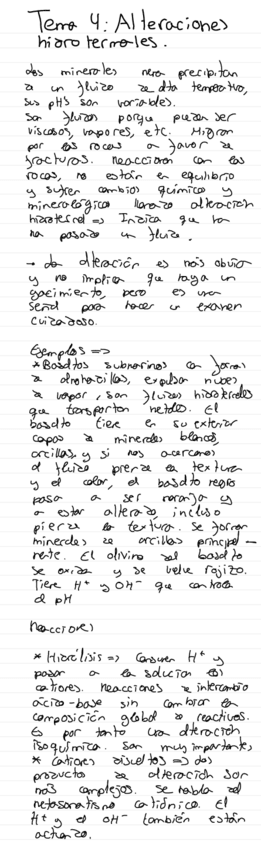 Tema 4: Alteraciones
hidrotermales.
Los minerales nera precipitan
de un fluizo de alta temperatura,
sus pHs son variables.
Son fluizos porque pueden ser
viscosos, vapores, etc. Migran
por las rocas a favor de
fracturas. Reaccionan con las
rocas, no están en equilibrio
y sufren cambios químicos y
mineralógicos llamado alteración
hidrotermal => Indica que por la
ha pasado un fluizo.
→ La alteración es más obvia
y no implica que haya un
yacimiento, pero es una
señal para hacer un examen
cuidadoso.
Ejemplos =>
* Basaltos submarinos con formas
de almohadillas, expulsan nubes
de vapor, son fluizos hidrotermales
que transportan metales. El
basalto tiene en su exterior
capas de minerales blancos,
arcillas y si nos acercamos
al fluizo pierde la textura
y el color, el basalto negro
pasa a ser naranja y
a estar alterado, incluso
pierde la textura. Se forman
minerales de arcillas principal-
mente. El olivino del basalto
se oxida y se vuelve rojizo.
Tiene H⁺ y OH⁻ que controla
el pH
Reacciones
* Hidrólisis => Consumen H⁺ y
pasan a la solución los
cationes. Reacciones de intercambio
ácido-base sin cambiar la
composición global de reactivos.
Es por tanto una alteración
isoquímica. Son muy importantes,
* Cationes disueltos => Los
productos de alteración son
más complejos. Se habla del
metasomatismo catiónico. El
H⁺ y el OH⁻ también están
actuando.